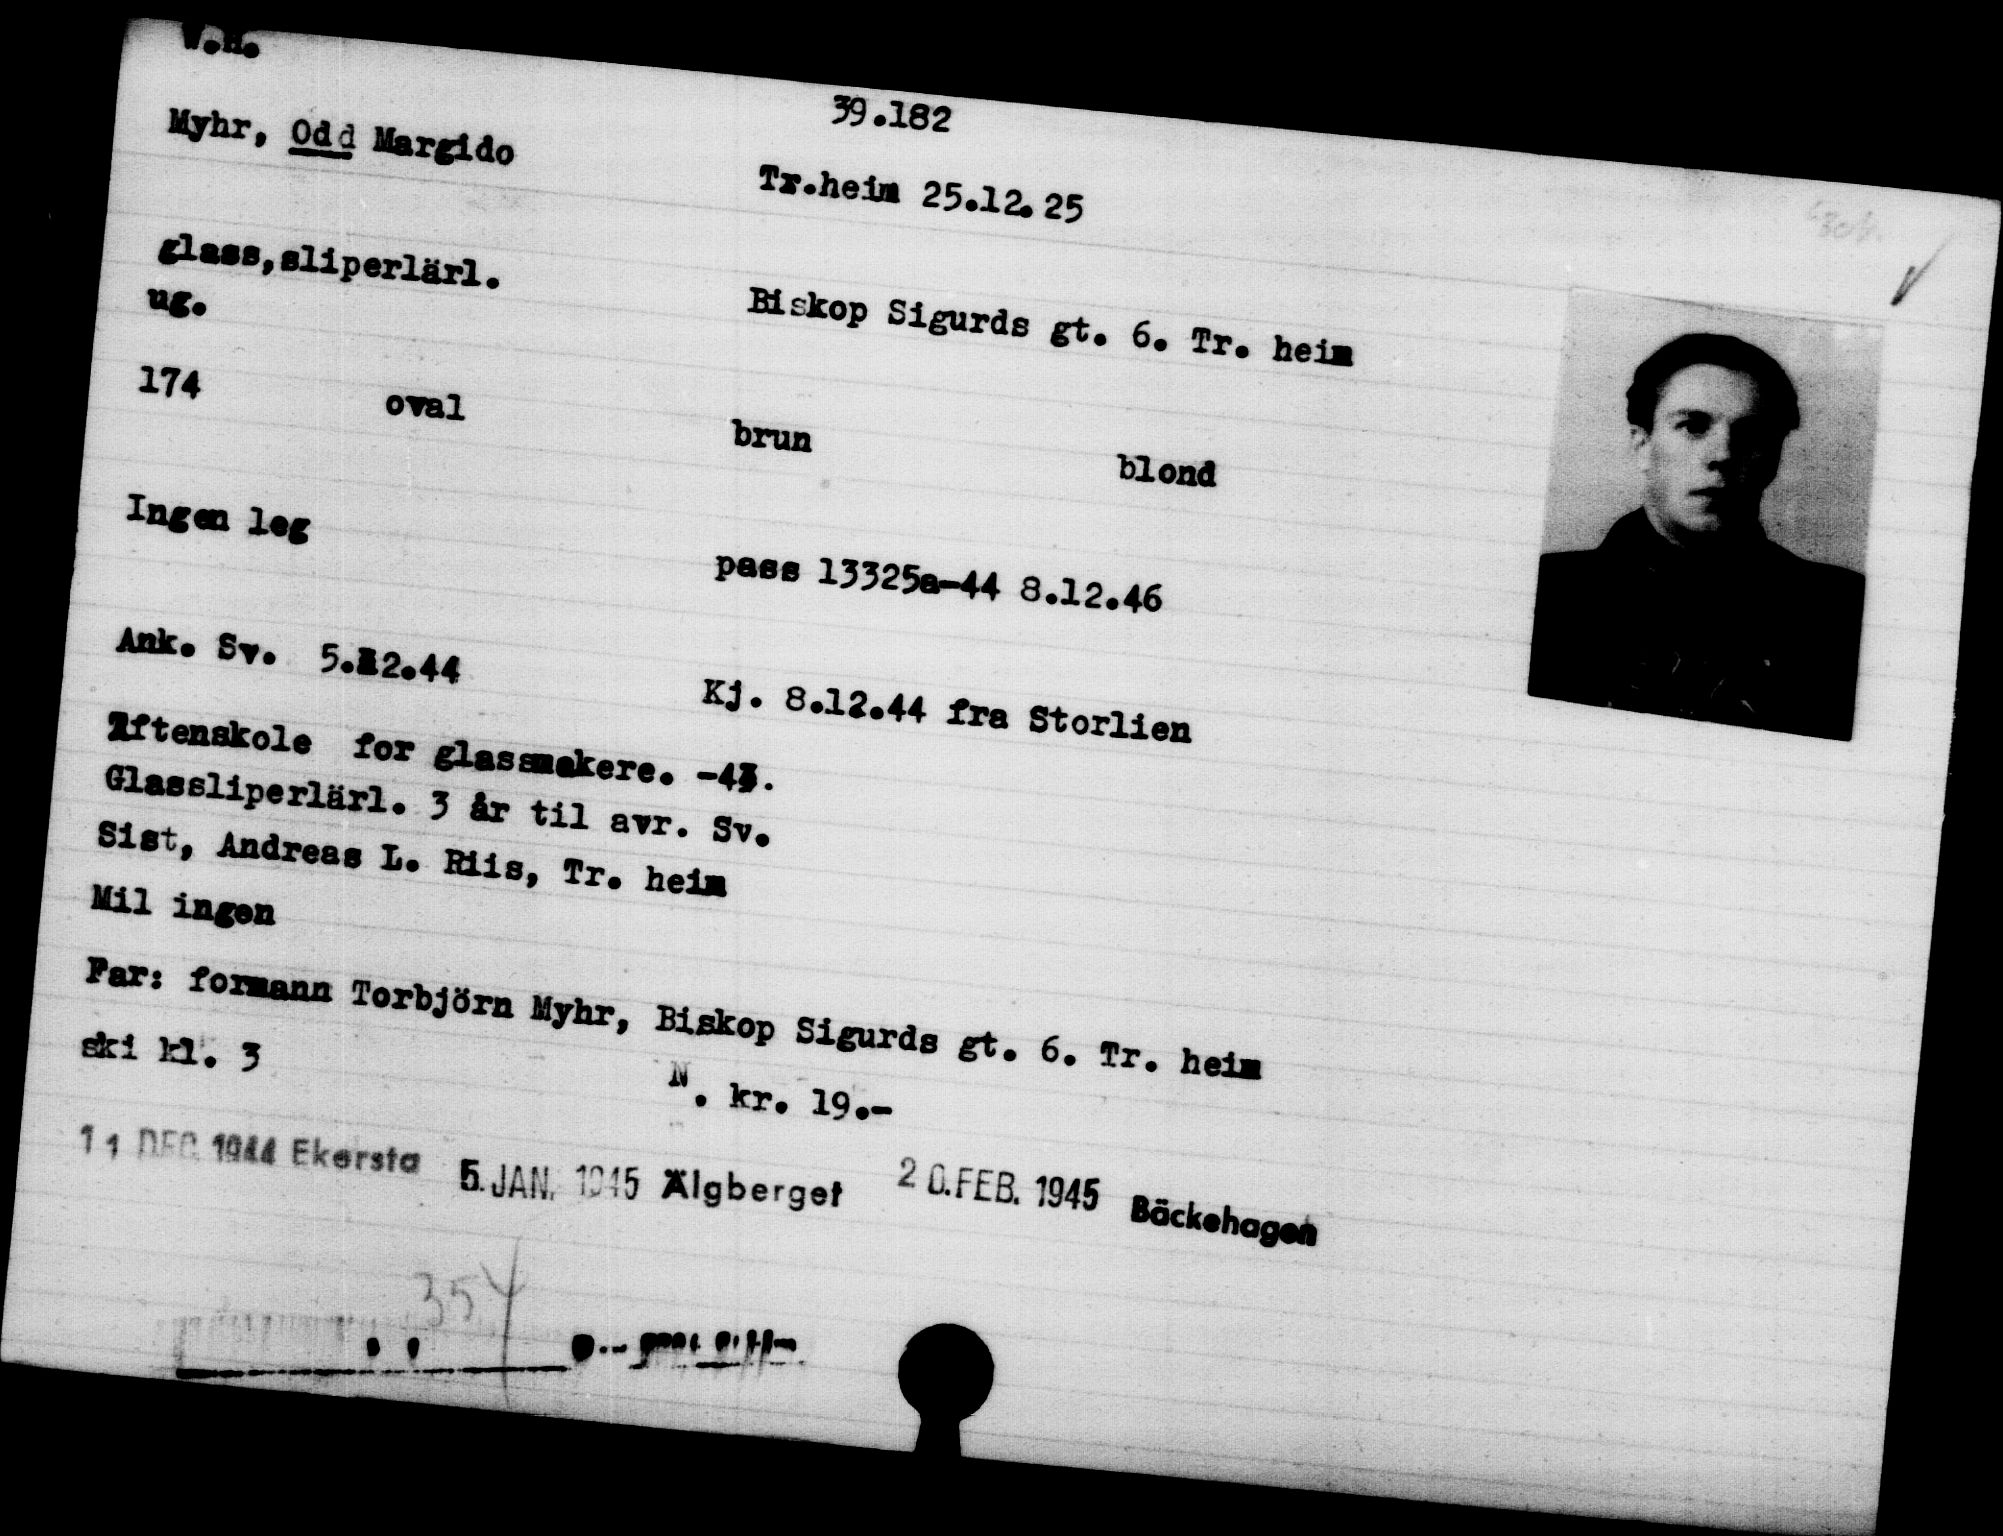 V.H.
39.182
Myhr, Odd Margido
Tr.heim 25.12.25
glass,sliperlärl.
ug.
Biskop Sigurds gt. 6. Tr. heim
174 oval brun blond
Ingen leg
pass 13325a-44 8.12.46
Ank. Sv. 5.12.44
Kj. 8.12.44 fra Storlien
Aftenskole for glassmakere. -43.
Glassliperlärl. 3 år til avr. Sv.
Sist, Andreas L. Riis, Tr. heim
Mil ingen
Far: formann Torbjörn Myhr, Biskop Sigurds gt. 6. Tr. heim
ski kl. 3
N. kr. 19.-
11 DEC. 1944 Ekersta 5. JAN. 1945 Älgberget 20. FEB. 1945 Bäckehagen
354